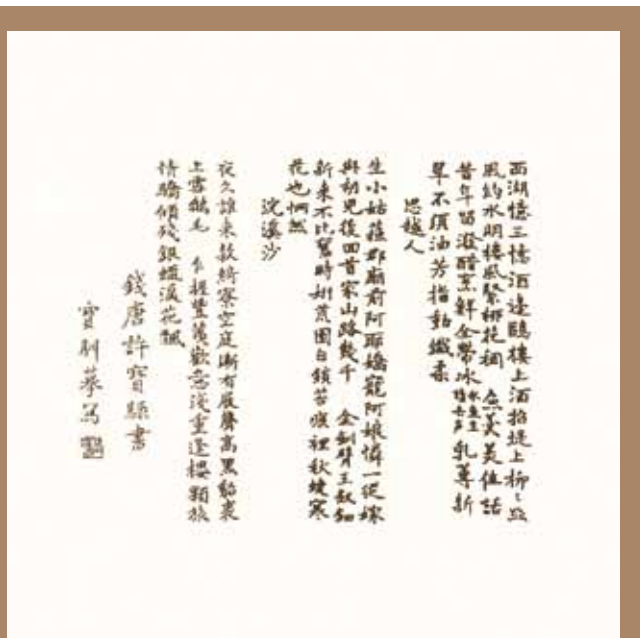 西湖憶三憶酒邊鷗樓上酒招堤上柳〻絲
風約水明樓風緊柳花稠 魚羹美佳話
昔年留潑醋烹鮮全帶冰冰魚生讀去聲乳蓴新
翠不須油芳指動纖柔
思越人
生小姑蘇郡廟前阿爺嬌寵阿娘憐一從嫁
與初兒後回首家山路幾千 金釧臂玉釵鈿
新來不比舊時妍荒園白鎖苔痕裡秋蝶寒
花也惘然
浣溪沙
夜久誰來款綺寮空庭漸有屧聲高黑貂裘
上雪鵝毛 乍提歡意淺重逢樓頭旅
情驕傾殘銀燭淚花飄
錢唐許寶騄書
寶馴摹寫